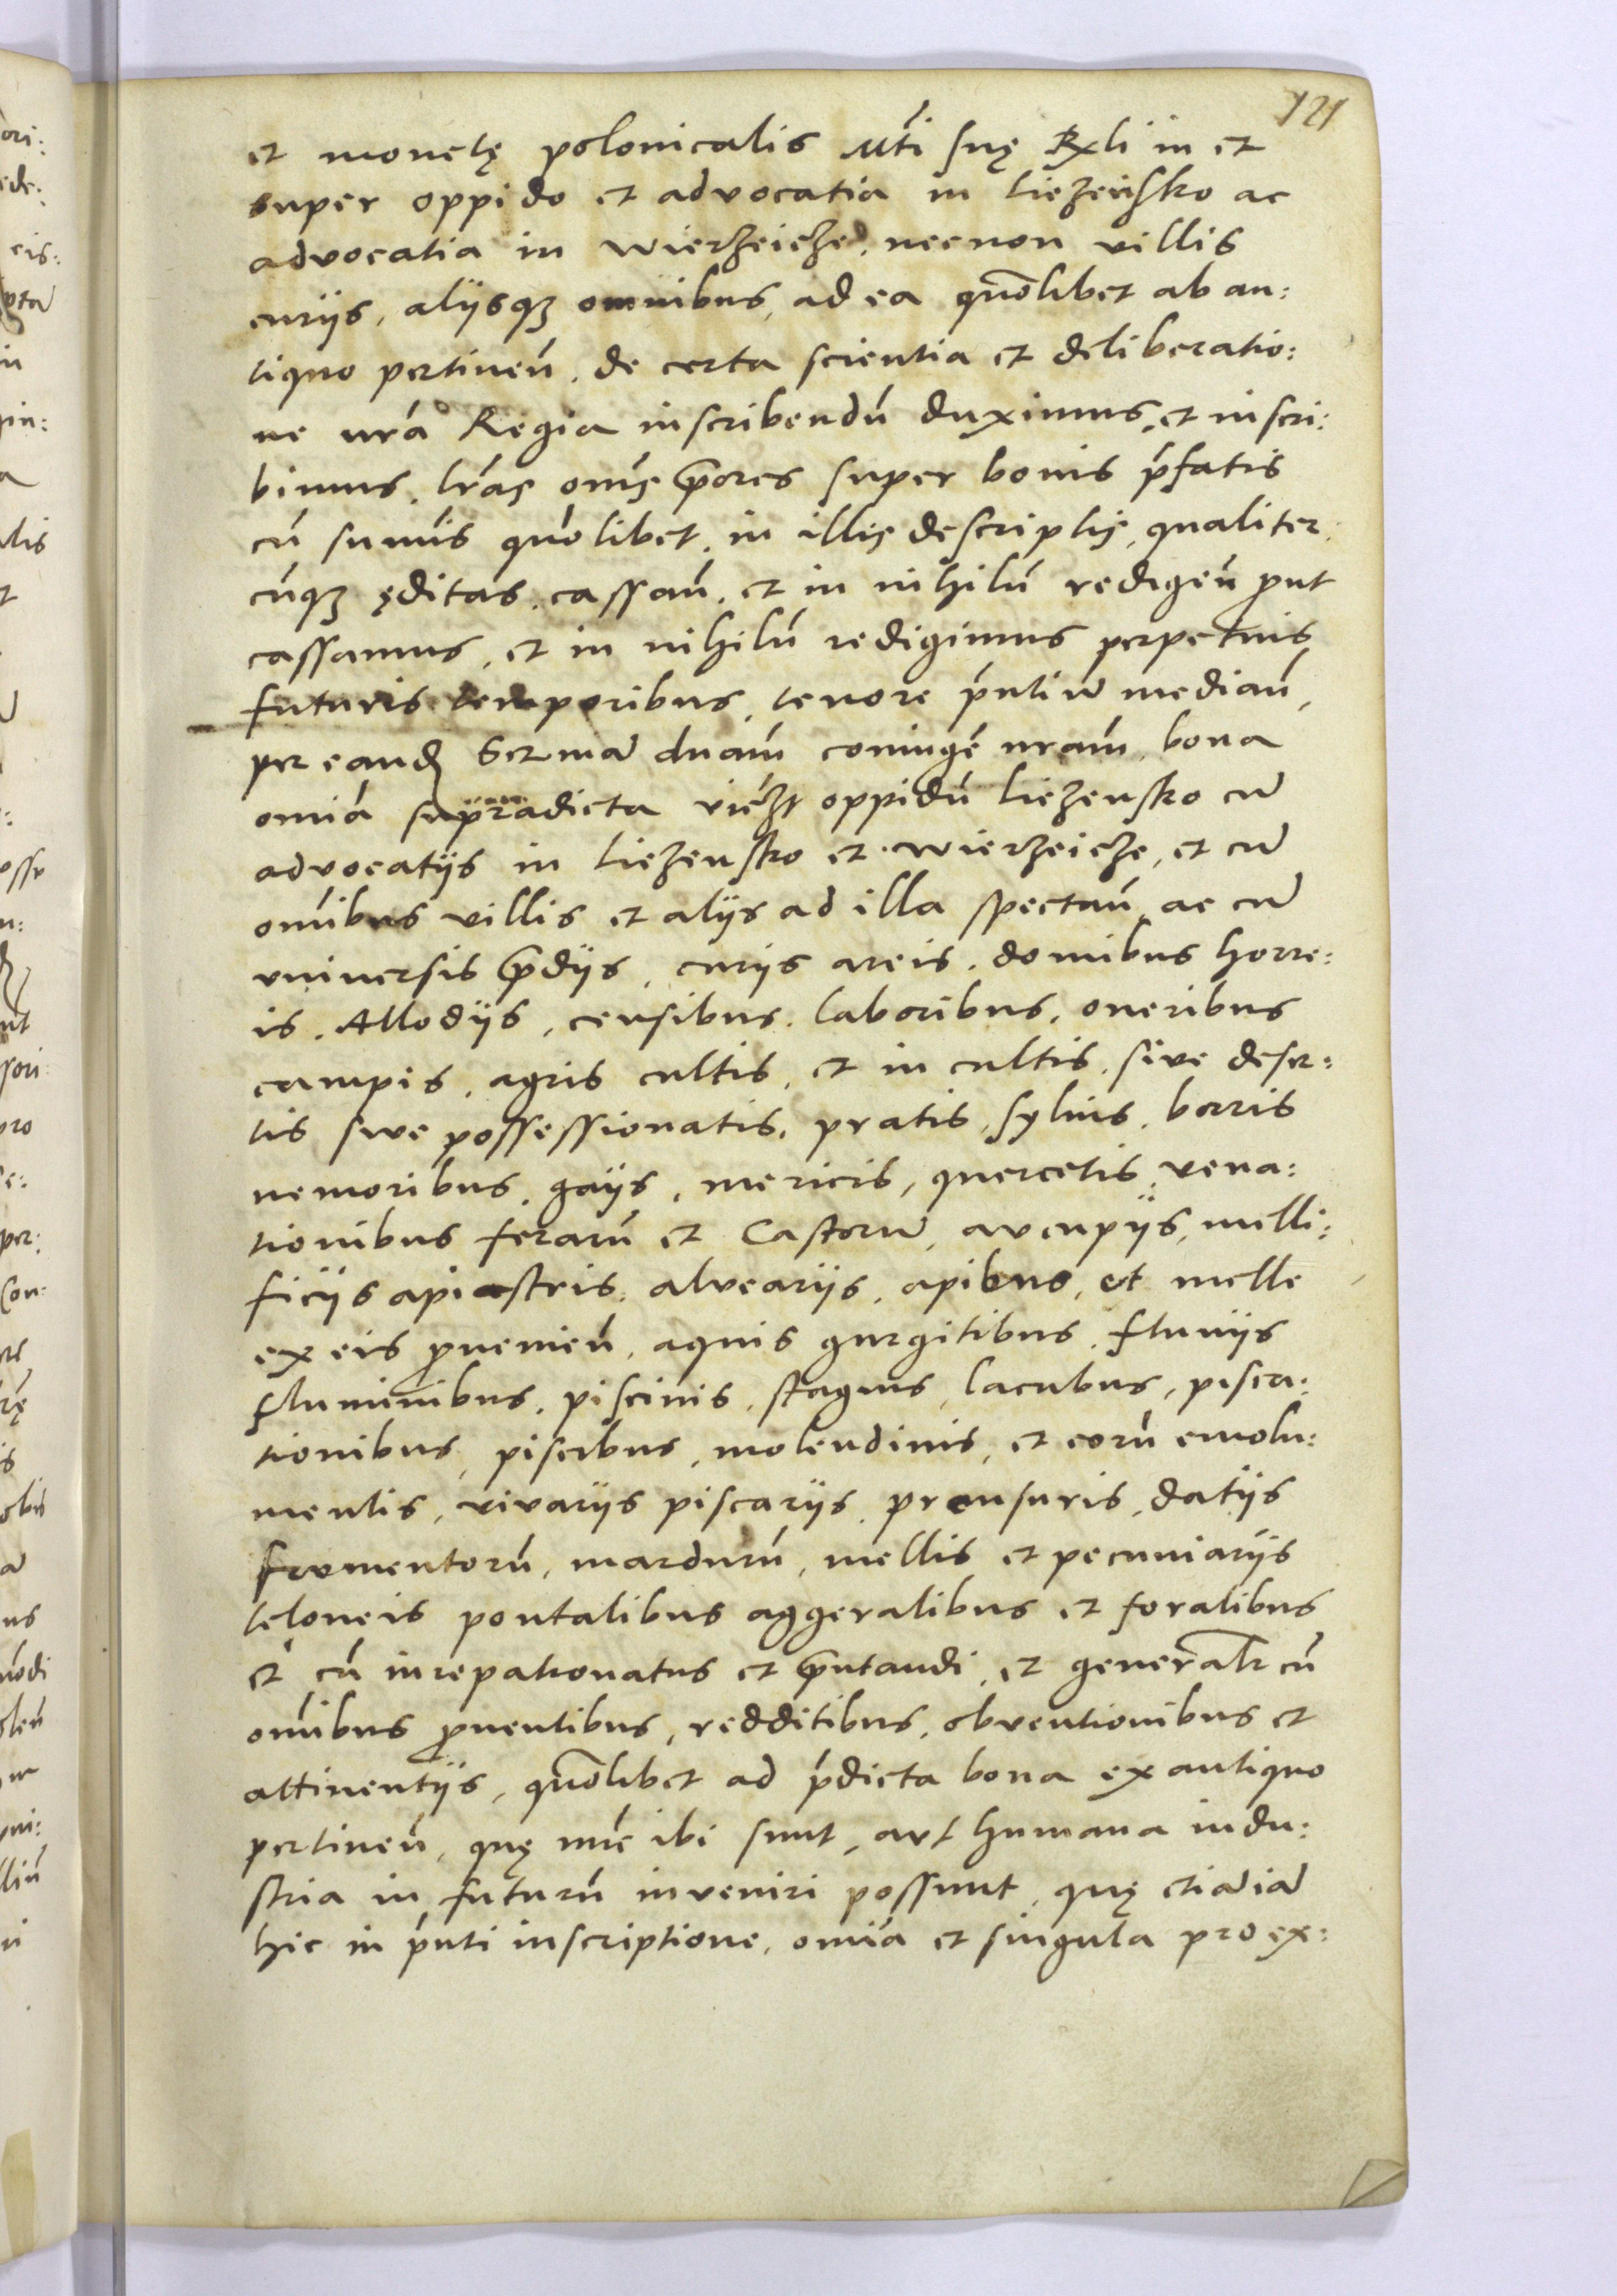 121
et monetę polonicalis Mti suę Rxli in et
super oppido et advocatia in Liezensko ac
advocatia in Wierzeicze, necnon villis
curijs, alijsqꝫ omnibus, ad ea quolibet ab an:
tiquo pertineñ, de certa scientia et deliberatio:
ne nrá Regia inscribendú duximus, et inscri:
bimus, lrás omés priores super bonis pfatis
cú sumis quolibet, in illis descriptis, qualiter
cúqꝫ ęditas, cassañ, et in nihilú redigeñ prout
cassamus, et in nihilú redigimus perpetuis
futuris temporibus, tenore pñtiũ mediañ,
per eandꝫ Sermã dnám coniugé nrám, bona
omiá supradicta viczt oppidú Liezensko cũ
advocatijs in Liezensko et Wierzeicze, et cũ
omibus villis et alijs ad illa spectañ, ac cũ
universis prdijs, curijs areis, domibus horre:
is, Allodijs, censibus, laboribus, oneribus
campis, agris cultis, et in cultis, sive deser:
tis sive possessionatis, pratis, sylvis, borris
nemoribus, gays, mericis, quercetis, vena:
tionibus ferarú et Castorũ, avcupijs, melli:
ficijs apiastris, alvearijs, apibus, et melle
ex eis pvenieñ, aquis gurgitibus, fluvijs
fluminibus, piscinis, stagnis, lacubus, pisca:
tionibus, piscibus, molendinis, et eorú emolu:
mentis, vivarijs piscarijs, prensuris, datijs
frumentorú, mardurú, mellis et pecuniarijs
teloneis pontalibus aggeralibus et foralibus
et cú iurepatronatus et prntandi, et generalr cú
omibus pventibus, redditibus, obventionibus et
attinentijs, quolibet ad pdicta bona ex antiquo
pertineñ, quę núc ibi sunt, avt humana indu:
stria in futurú inveniri possunt, quę etiã iã
hic in pñti inscriptione, omia et singula pro ex: